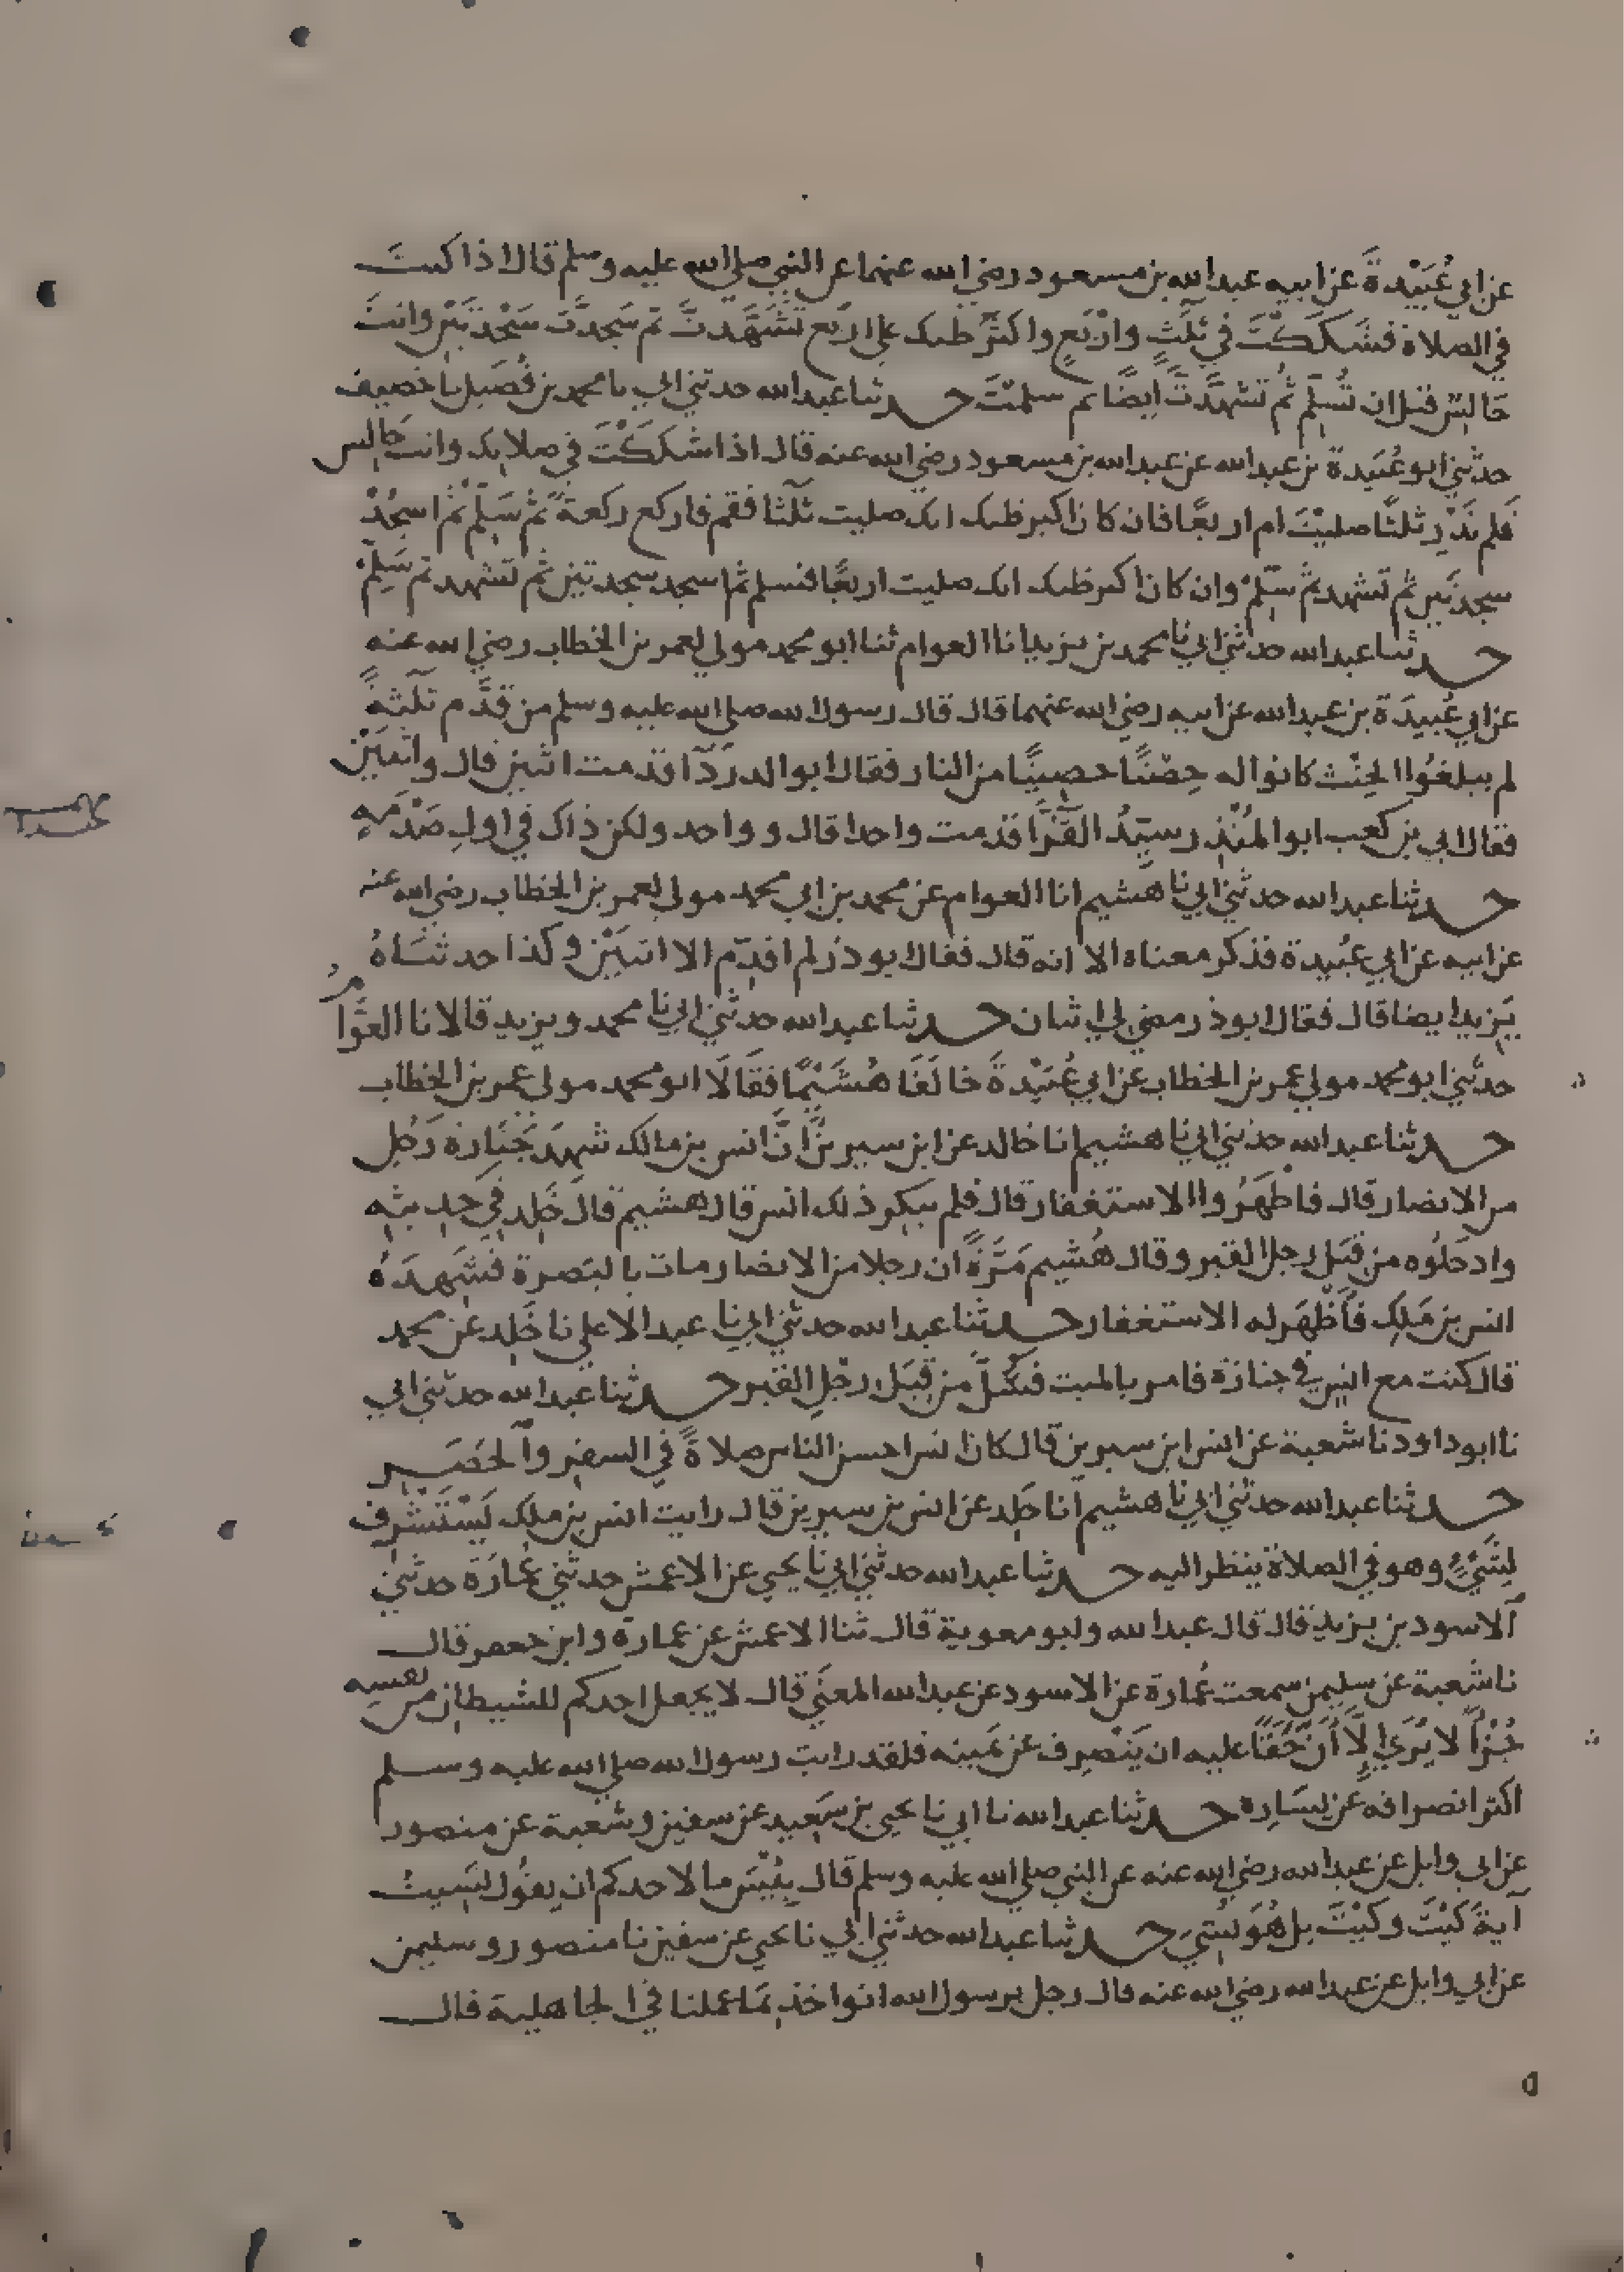 عن ابي عُبَيْدةَ عن ابيه عبد الله بن مسعود رضي الله عنهما عن النبي صلى الله عليه وسلم قال اذا كنتَ
في الصلاة فشَكَكْتَ في ثلثٍ واربَعٍ واكثرُ ظنك على اربَع تَشَهَّدتَّ ثم سَجدتَّ سَجْدتَيْنِ وانتَ
جَالِسٌ قبل ان تُسلِّمَ ثُم تَشهَّدتَّ ايضًا ثم سلمْتَ حدثنا عبد الله حدثني ابي نا محمد بن فُضَيل نا خصيف
حدثني ابو عُبَيدة بن عبد الله عن عبد الله بن مسعود رضي الله عنه قال اذا شككْتَ في صلاتك وانت جَالِس
فلم تَدْرِ ثلثًا صليْتَ ام اربعًا فان كان اكبر ظنك انك صليت ثلثا فقم فاركع ركعةً ثم سَلِّمْ ثم اسجُدْ
سجدتَيْنِ ثم تَشهد ثم سَلِّمْ وان كان اكبر ظنك انك صليت اربعًا فسلم ثم اسجد سجدتين ثم تشهد ثم سَلِّمْ
حدثنا عبد الله حدثني ابي نا محمد بن يزيد انا العوام ثنا ابو محمد مولى لعمر بن الخطاب رضي الله عنه
عن ابي عُبيدَة بن عبد الله عن ابيه رضي الله عنهما قال قال رسول الله صلى الله عليه وسلم من قدَّم ثلثةً
لم يبلغُوا الحِنْث كانوا له حِصْنًا حصِينًا من النار فقال ابو الدردَا قدمت اثنين قال واثنَيْن
فقال ابي بن كعب ابو المُنْذر سيِّدُ القُرَّا قدمت واحدا قال وواحد ولكن ذاك في اولِ صَدْمةٍ
حدثنا عبد الله حدثني ابي نا هشيم انا العوام عن محمد بن ابي محمد مولى لعمر بن الخطاب رضي الله عنه
عن ابيه عن ابي عبُيدة فذكر معناه الا انه قال فقال ابو ذر لم اقدِّم الا اثنَيْنِ وكذا حدثنَاهُ
يَزيد ايضا قال فقال ابو ذر مضى لي اثنان حدثنا عبد الله حدثني ابي نا محمد ويزيد قالا نا العوَّام
حدثني ابو محمد مولى عمر بن الخطاب عن ابي عُبَيْدةَ خالَفَا هُشَيْمًا فقَالَا ابو محمد مولى عمر بن الخطاب
حدثنا عبد الله حدثني ابي نا هشيم انا خالد عن ابن سيرين انَّ انس بن مالك شهِدَ جَنَازة رَجُل
من الانصار قال فاظهَرُوا الاستغفار قال فلم ينكِر ذلك انس قال هشيم قال خلد في حديثِه
وادخَلُوه من قِبَل رِجل القبر وقال هُشيم مَرَّةً ان رجلا من الانصار مات بالبَصرة فشَهِدَهُ
انس بن مَلِك فاَظْهَرُ له الاستغفار حدثنا عبد الله حدثني ابي نا عبد الاعلى نا خَلد عن محمد
قال كنت مع انس في جنازة فامر بالميت فسُلَّ مِن قِبَل رِجْلِ القبر حدثنا عبد الله حدثني ابي
نا ابو داود نا شعبة عن انس ابن سيرين قال كان انس احسن الناس صلاةً في السفرِ والحَضَرِ
حدثنا عبد الله حدثني ابي نا هشيم انا خلد عن انس بن سيرين قال رايت انس بن ملك يَسْتَشرِف
لِشَيْءٍ وهو في الصلاة ينظر اليه حدثنا عبد الله حدثني ابي نا يحيى عن الاعمش حدثني عُمارَة حدثني
الاسود بن يزيد قال قال عبد الله وابو معوية قال ثنا الاعمش عن عمارة وابن جعفر قال
نا شعبة عن سليمن سمعت عُمارة عن الاسود عن عبد الله المعنَى قال لا يجعل احدكم للشيطان من نفسه
جُزْاً لا يَرَى اِلَّا اَنَّ حَقًّا عليه ان يَنْصرِف عن يَمينه فلقد رايت رسول الله صلى الله عليه وسلم
اكثر انصرافه عن يسَارِه حدثنا عبد الله نا ابي نا يحيى بن سَعِيد عن سفين وشعبة عن منصور
عن ابي وايل عن عبد الله رضي الله عنه عن النبي صلى الله عليه وسلم قال بِئْسَ ما لاحدكم ان يقوُل نَسِيتُ
آيةَ كَيْتَ وكَيْتَ بل هُوَ نُسِّيَ حدثنا عبد الله حدثني ابي نا يحيى عن سفين نا منصور وسليمن
عن ابي وايل عن عبد الله رضي الله عنه قال رجل يرسول الله انواخذ بمَا عملنا في الجاهلية قال